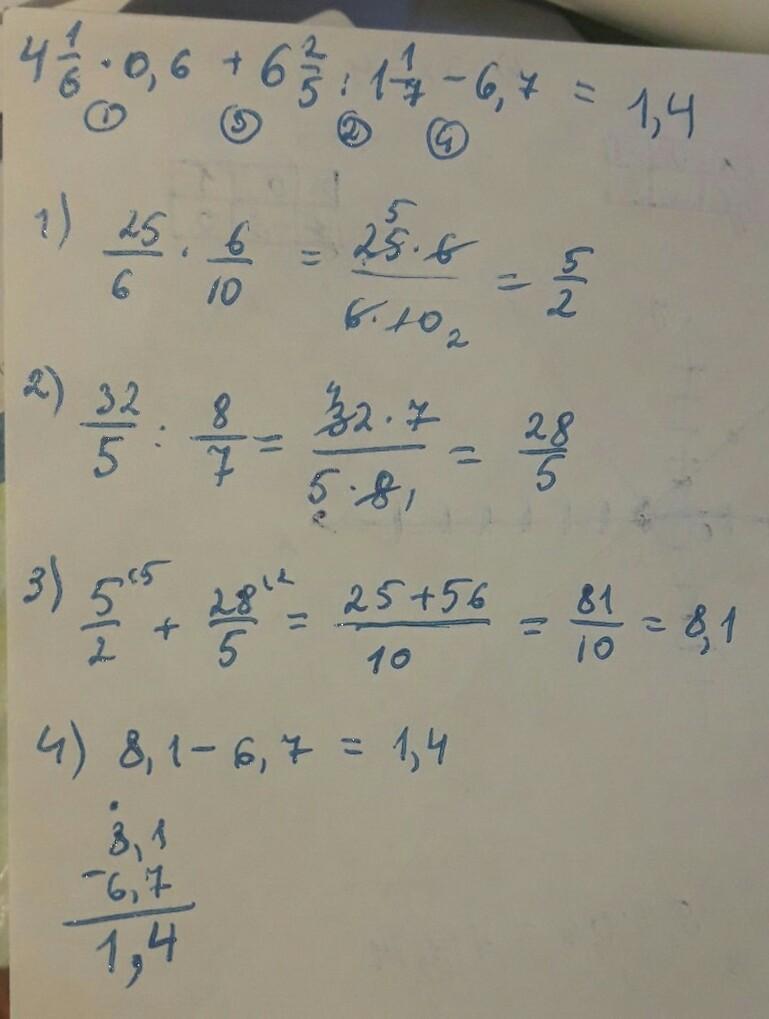 4 1/6 · 0,6 + 6 2/5 : 1 1/7 - 6,7 = 1,4
① ③ ② ④
1) 25/6 · 6/10 = 25·6/6·10 = 5/2
5
2
2) 32/5 : 8/7 = 32·7/5·8 = 28/5
4
1
3) 5/2 ·5 + 28/5 ·2 = 25+56/10 = 81/10 = 8,1
4) 8,1 - 6,7 = 1,4
8,1
-6,7
1,4